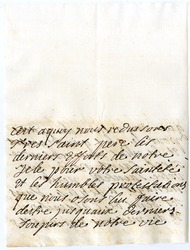 cest aquoy nous reduisons
tres saint pere les
derniers efforts de notre
zele pour votre sainteté
et les humbles protestations
que nous osons luy faire
destre jusquaux derniers
soupirs de notre vie